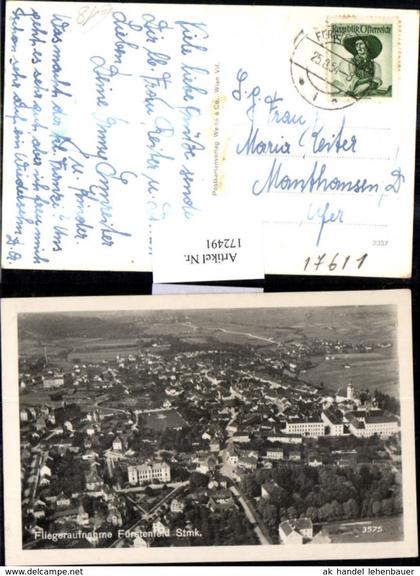 Viele liebe Grüße sende
Die lb. Frau Reiter u.
Lieben
Deine
u. Kinder.
Was macht der lb. Franz? Uns
geht es sehr gut, aber ich freu mich
schon sehr auf ein Wiedersehn D. O.
Postkartenverlag Wenau & Co., Wien VI.
Republik Österreich
S. g. Frau
Maria Reiter
Mauthausen, D.
Ufer
3357
17611
Artikel Nr.
172491
Fliegeraufnahme Fürstenfeld Stmk.
3575
© ak - handel lehenbauer